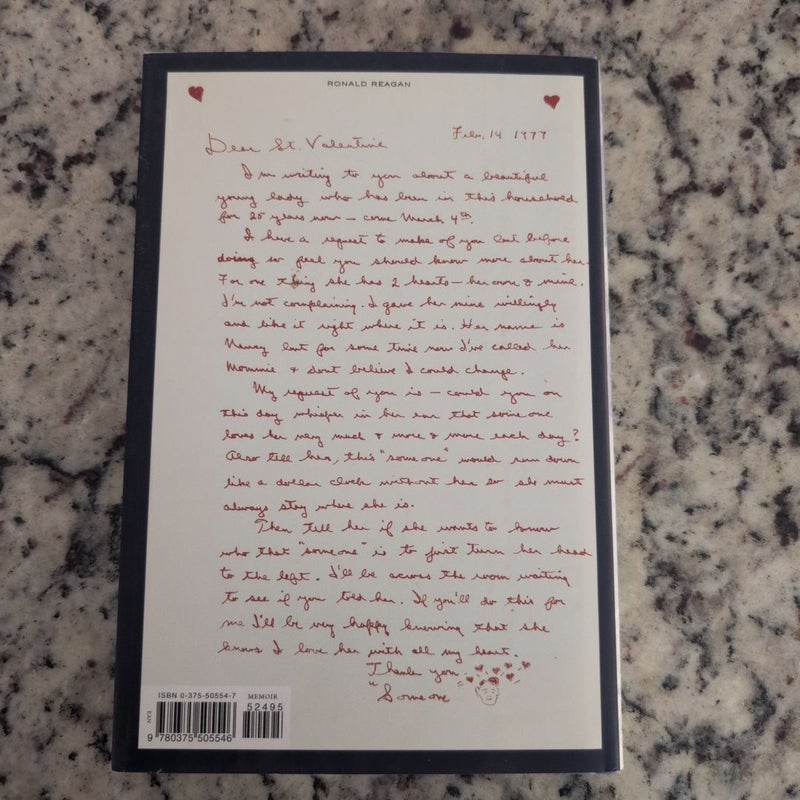 RONALD REAGAN
Feb. 14 1977
Dear St. Valentine
I'm writing to you about a beautiful
young lady who has been in this household
for 25 years now – come March 4th.
I have a request to make of you but before
doing so feel you should know more about her.
For one thing she has 2 hearts – her own & mine.
I'm not complaining. I gave her mine willingly
and like it right where it is. Her name is
Nancy but for some time now I've called her
Mommie & don't believe I could change.
My request of you is – could you on
this day whisper in her ear that some one
loves her very much & more & more each day?
Also tell her, this "some one" would run down
like a dollar clock without her so she must
always stay where she is.
Then tell her if she wants to know
who that "some one" is to just turn her head
to the left. I'll be across the room waiting
to see if you told her. If you'll do this for
me I'll be very happy knowing that she
knows I love her with all my heart.
Thank you,
"Some one"
ISBN 0-375-50554-7 MEMOIR
52495
EAN
9 780375 505546